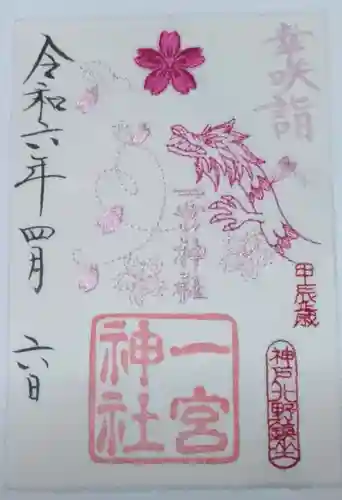 幸咲詣
一宮神社
甲辰歳
神戸北野鎮坐
一宮
神社
令和六年四月六日